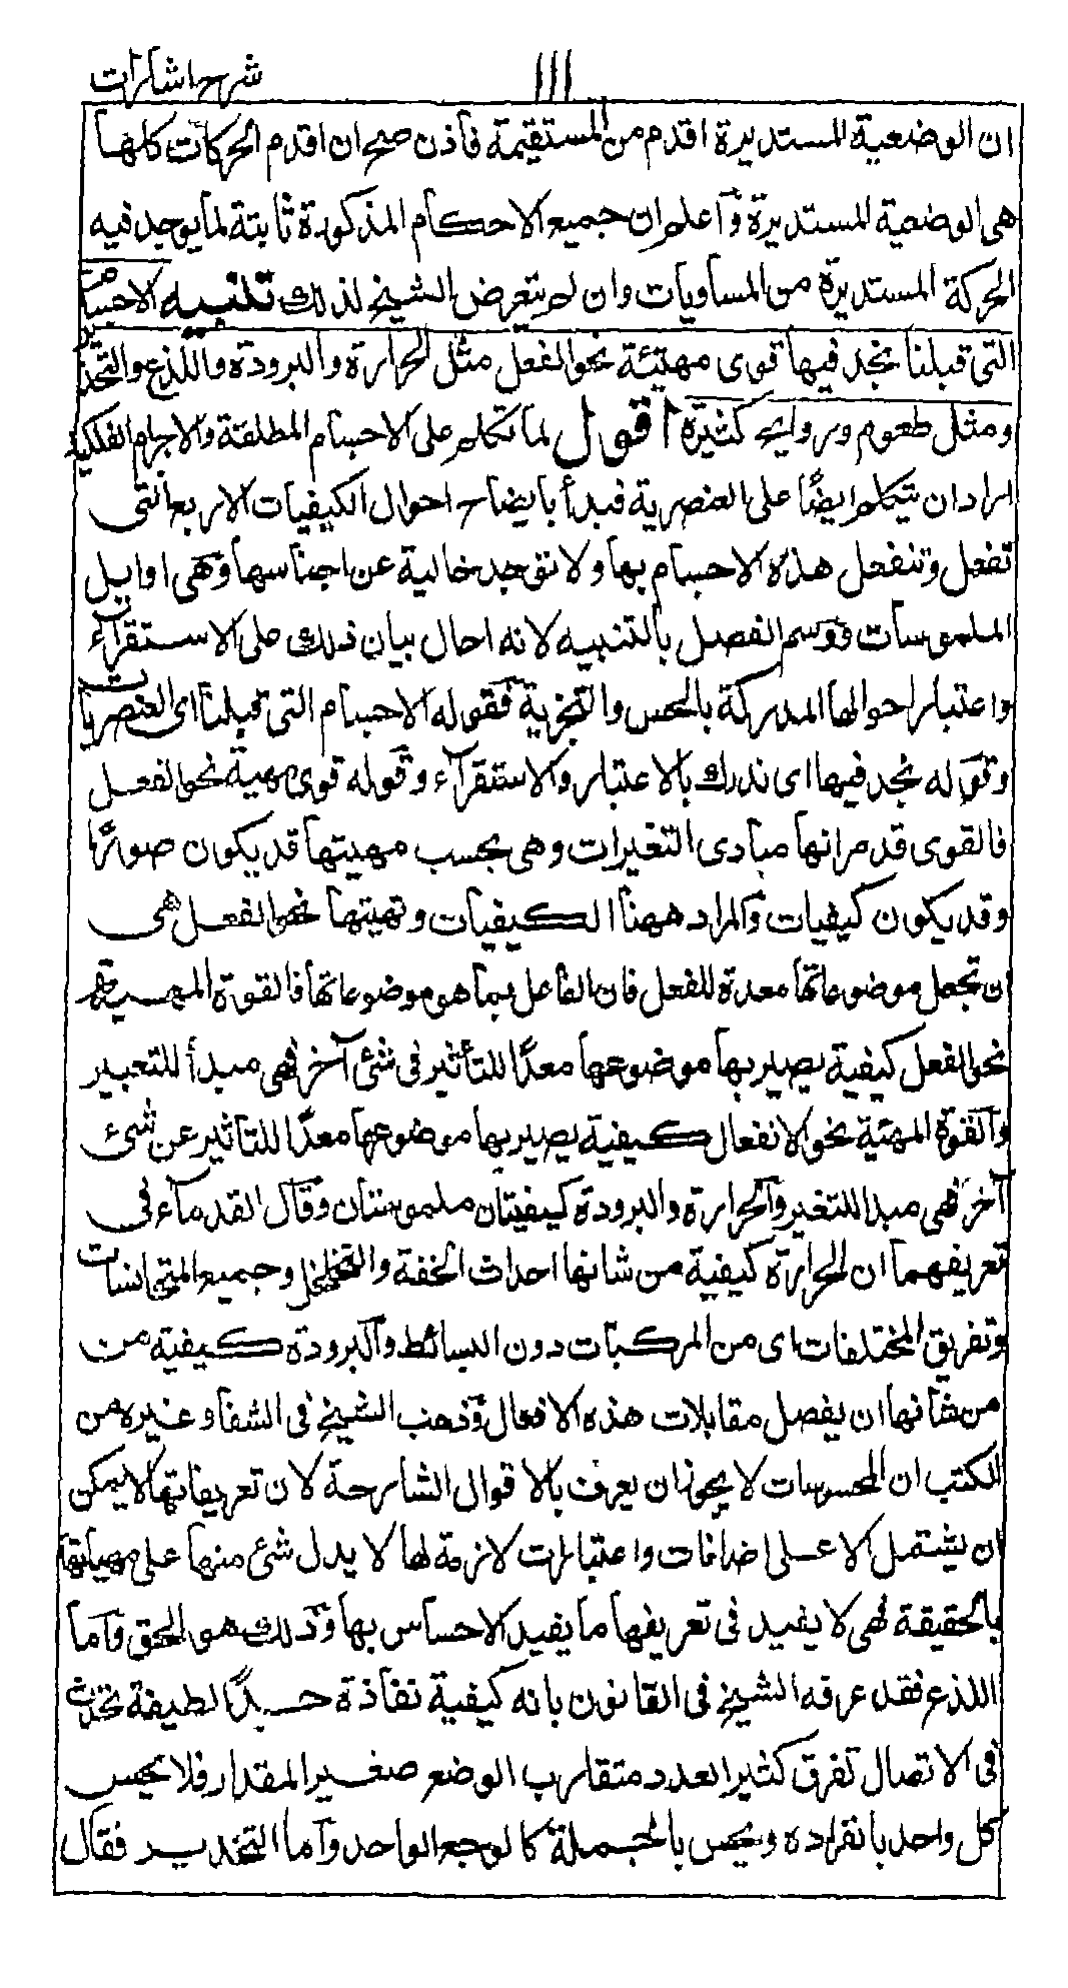 شرح اشارات
۱۱۱
ان الوضعية المستديرة اقدم من المستقيمة فاذن صح ان اقدم الحركات كلها
هى الوضعية المستديرة واعلم ان جميع الاحكام المذكورة ثابتة لما يوجد فيه
الحركة المستديرة من السماويات وان لم يتعرض الشيخ لذلك تنبيه الاجسام
التى قبلنا نجد فيها قوى مهيئة نحو الفعل مثل الحرارة والبرودة واللذع والتخدير
ومثل طعوم وروايح كثيرة اقول لما تكلم على الاجسام المطلقة والاجرام الفلكية
اراد ان يتكلم ايضًا على العنصرية فبدأ بايضاح احوال الكيفيات الاربع التى
تفعل وتنفعل هذه الاجسام بها ولا توجد خالية عن اجناسها وهى اوايل
الملموسات ووسم الفصل بالتنبيه لانه احال بيان ذلك على الاستقرآء
واعتبار احوالها المدركة بالحس والتجربة فقوله الاجسام التى قبلنا اى العنصريات
وقوله نجد فيها اى ندرك بالاعتبار والاستقرآء وقوله قوى مهيئة نحو الفعل
فالقوى قد مر انها مبادى التغيرات وهى بحسب مهيتها قد يكون صورًا
وقد يكون كيفيات والمراد ههنا الكيفيات وتهيئتها نحو الفعل هى
ان تجعل موضوعاتها معدة للفعل فان الفاعل بها هو موضوعاتها فالقوة المهيئة
نحو الفعل كيفية يصير بها موضوعها معدًا للتأثير فى شئ آخر فهى مبدأ للتغيير
والقوة المهيئة نحو الانفعال كيفية يصير بها موضوعها معدًا للتاثير عن شئ
آخر فهى مبدا للتغير والحرارة والبرودة كيفيتان ملموستان وقال القدمآء فى
تعريفهما ان الحرارة كيفية من شانها احداث الخفة والتخلخل وجميع المتجانسات
وتفريق المختلفات اى من المركبات دون البسائط والبرودة كيفية من
من شانها ان يفصل مقابلات هذه الافعال وذهب الشيخ فى الشفا وغيره من
الكتب ان المحسوسات لا يجوز ان يعرف بالاقوال الشارحة لان تعريفاتها لا يمكن
ان يشتمل الا على اضافات واعتبارات لازمة لها لا يدل شئ منها على مهياتها
بالحقيقة فهى لا يفيد فى تعريفها ما يفيد الاحساس بها وذلك هو الحق واما
اللذع فقد عرفه الشيخ فى القانون بانه كيفية نفاذة جدًا لطيفة تحدث
فى الاتصال تفرق كثير العدد متقارب الوضع صغير المقدار فلا يحس
كل واحد بانفراده ويحس بالجملة كالوجع الواحد واما التخدير فقال